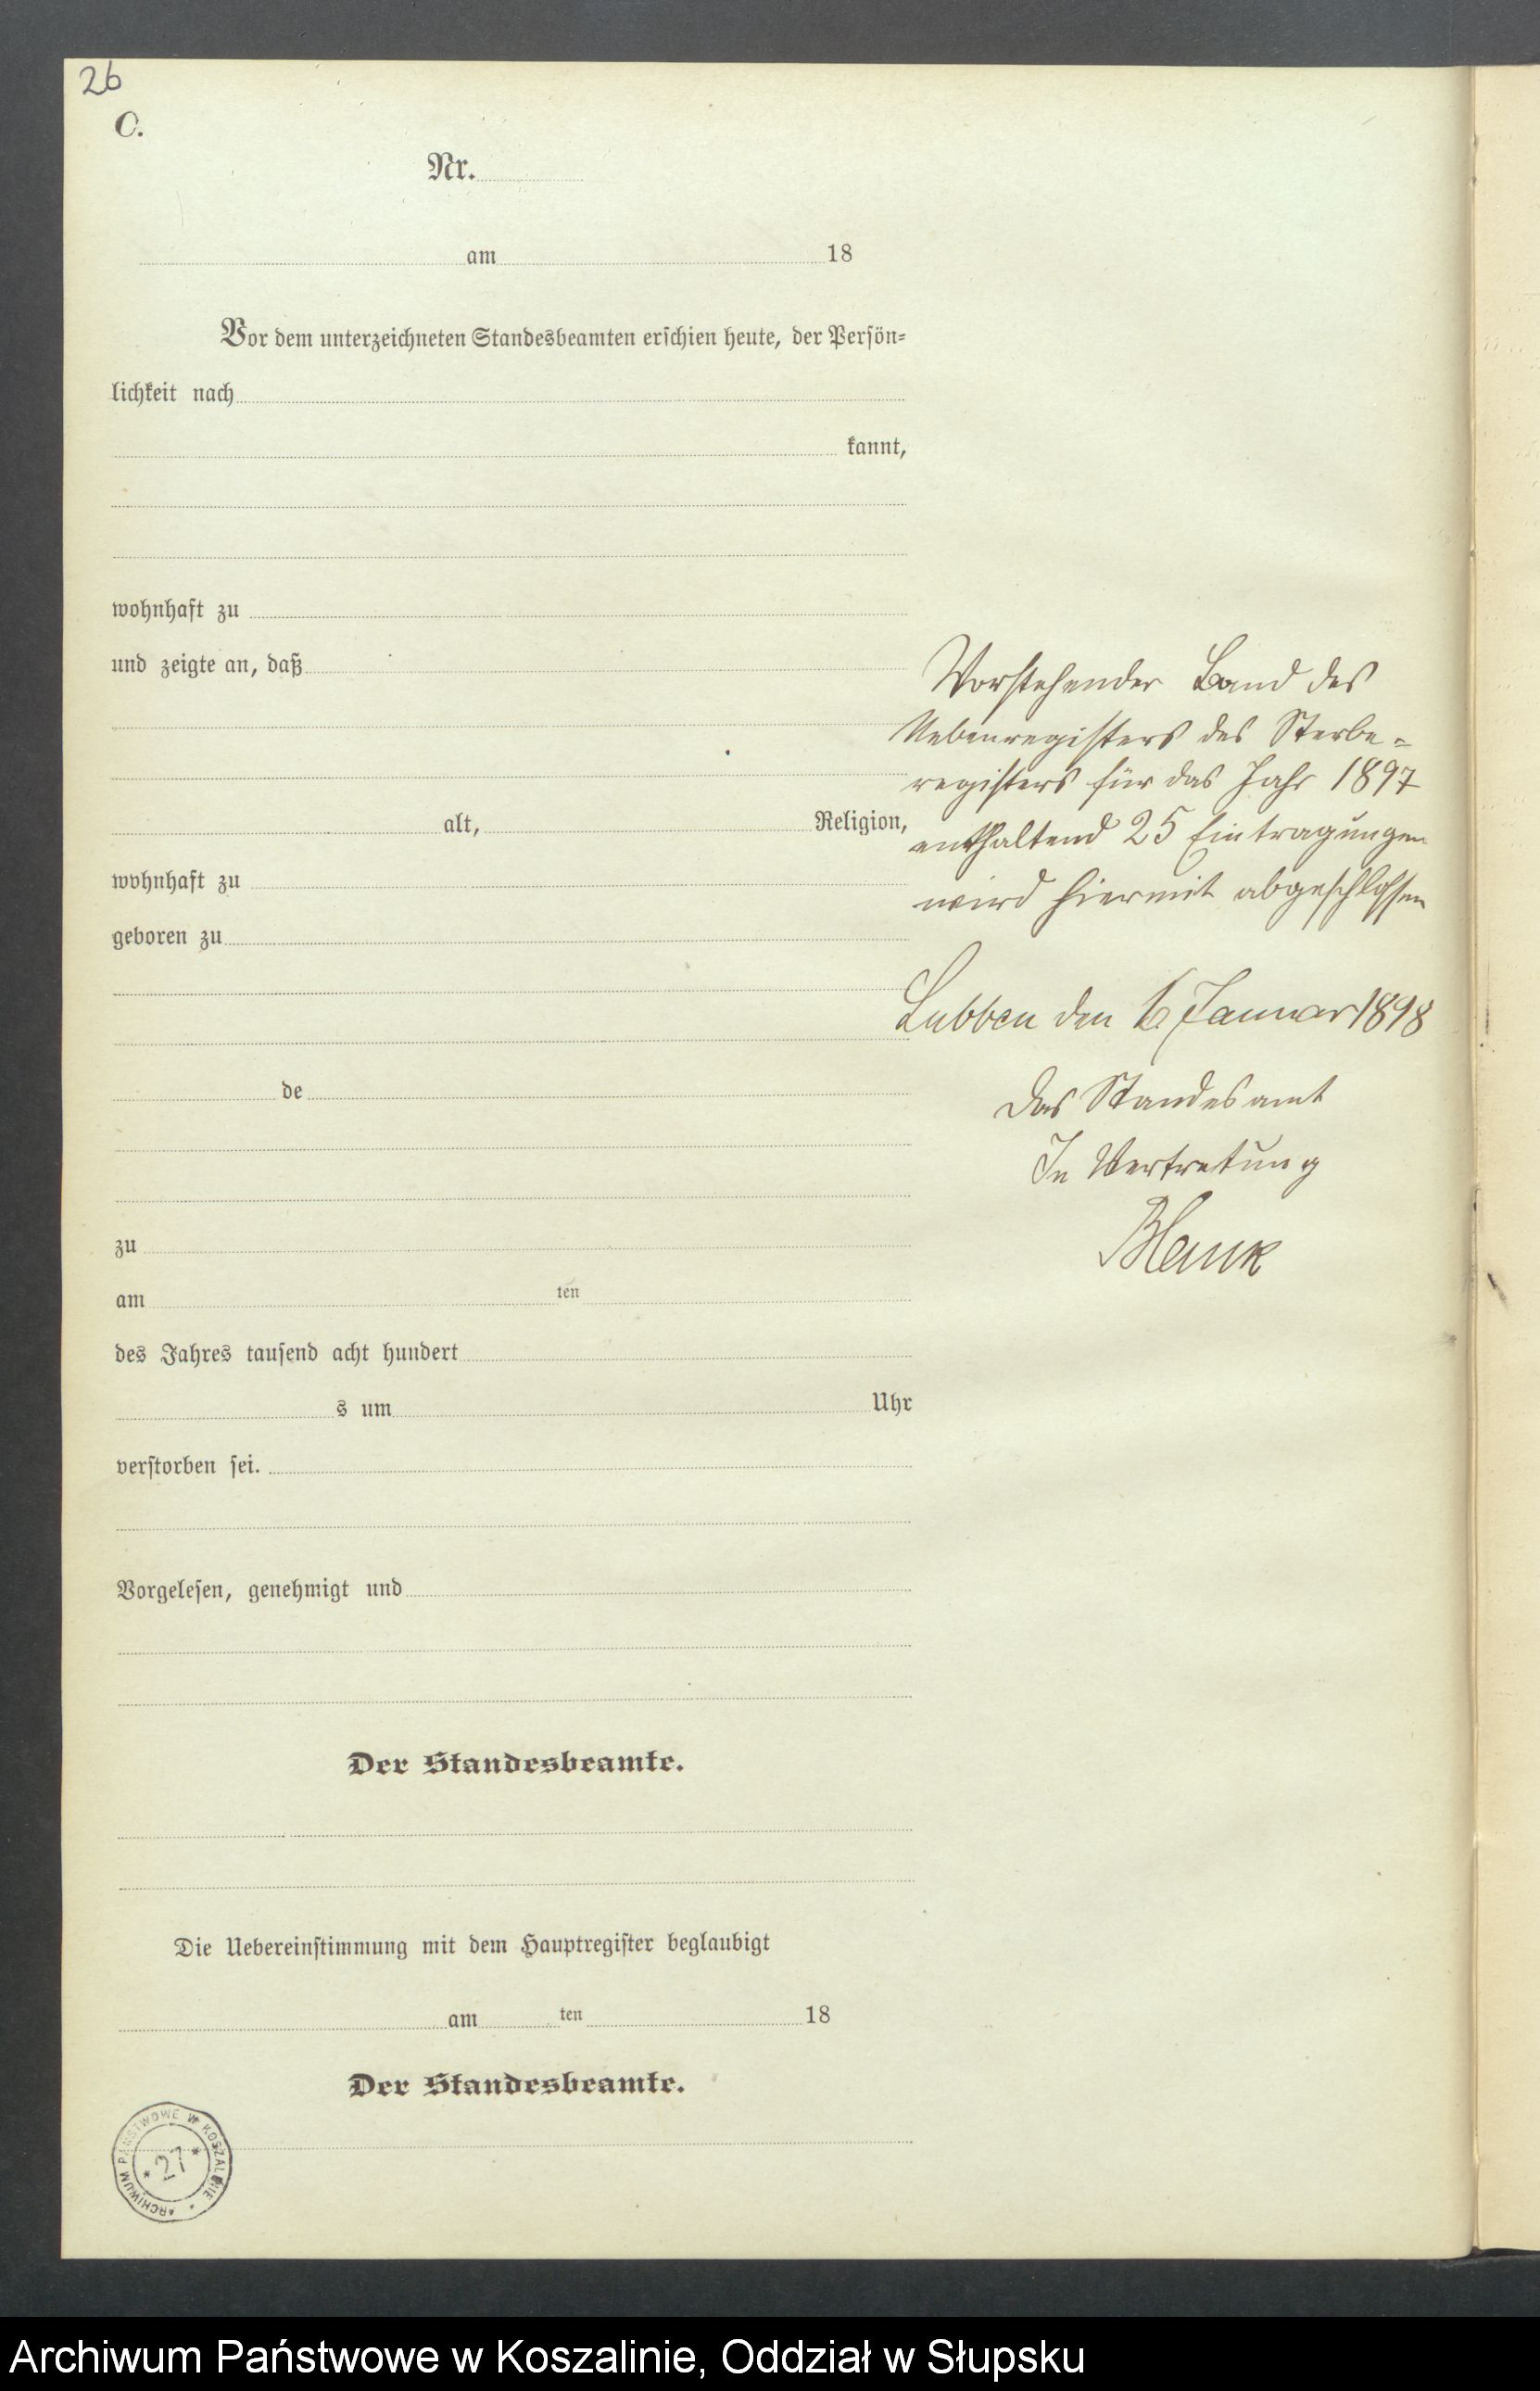 26
C.
Nr.
am 18
Vor dem unterzeichneten Standesbeamten erschien heute, der Persön=
lichkeit nach
kannt,
wohnhaft zu
und zeigte an, daß
alt, Religion,
wohnhaft zu
geboren zu
de
zu
am ten
des Jahres tausend acht hundert
s um Uhr
verstorben sei.
Vorgelesen, genehmigt und
Der Standesbeamte.
Die Uebereinstimmung mit dem Hauptregister beglaubigt
am ten 18
Der Standesbeamte.
Vorstehender Band des
Nebenregisters des Sterbe=
registers für das Jahr 1897
enthaltend 25 Eintragungen
wird hiermit abgeschlossen
Lubben den Januar 1898
Das Standesamt
In Vertretung
Blank
ARCHIWUM PAŃSTWOWE W KOSZALINIE
* 27 *
Archiwum Państwowe w Koszalinie, Oddział w Słupsku